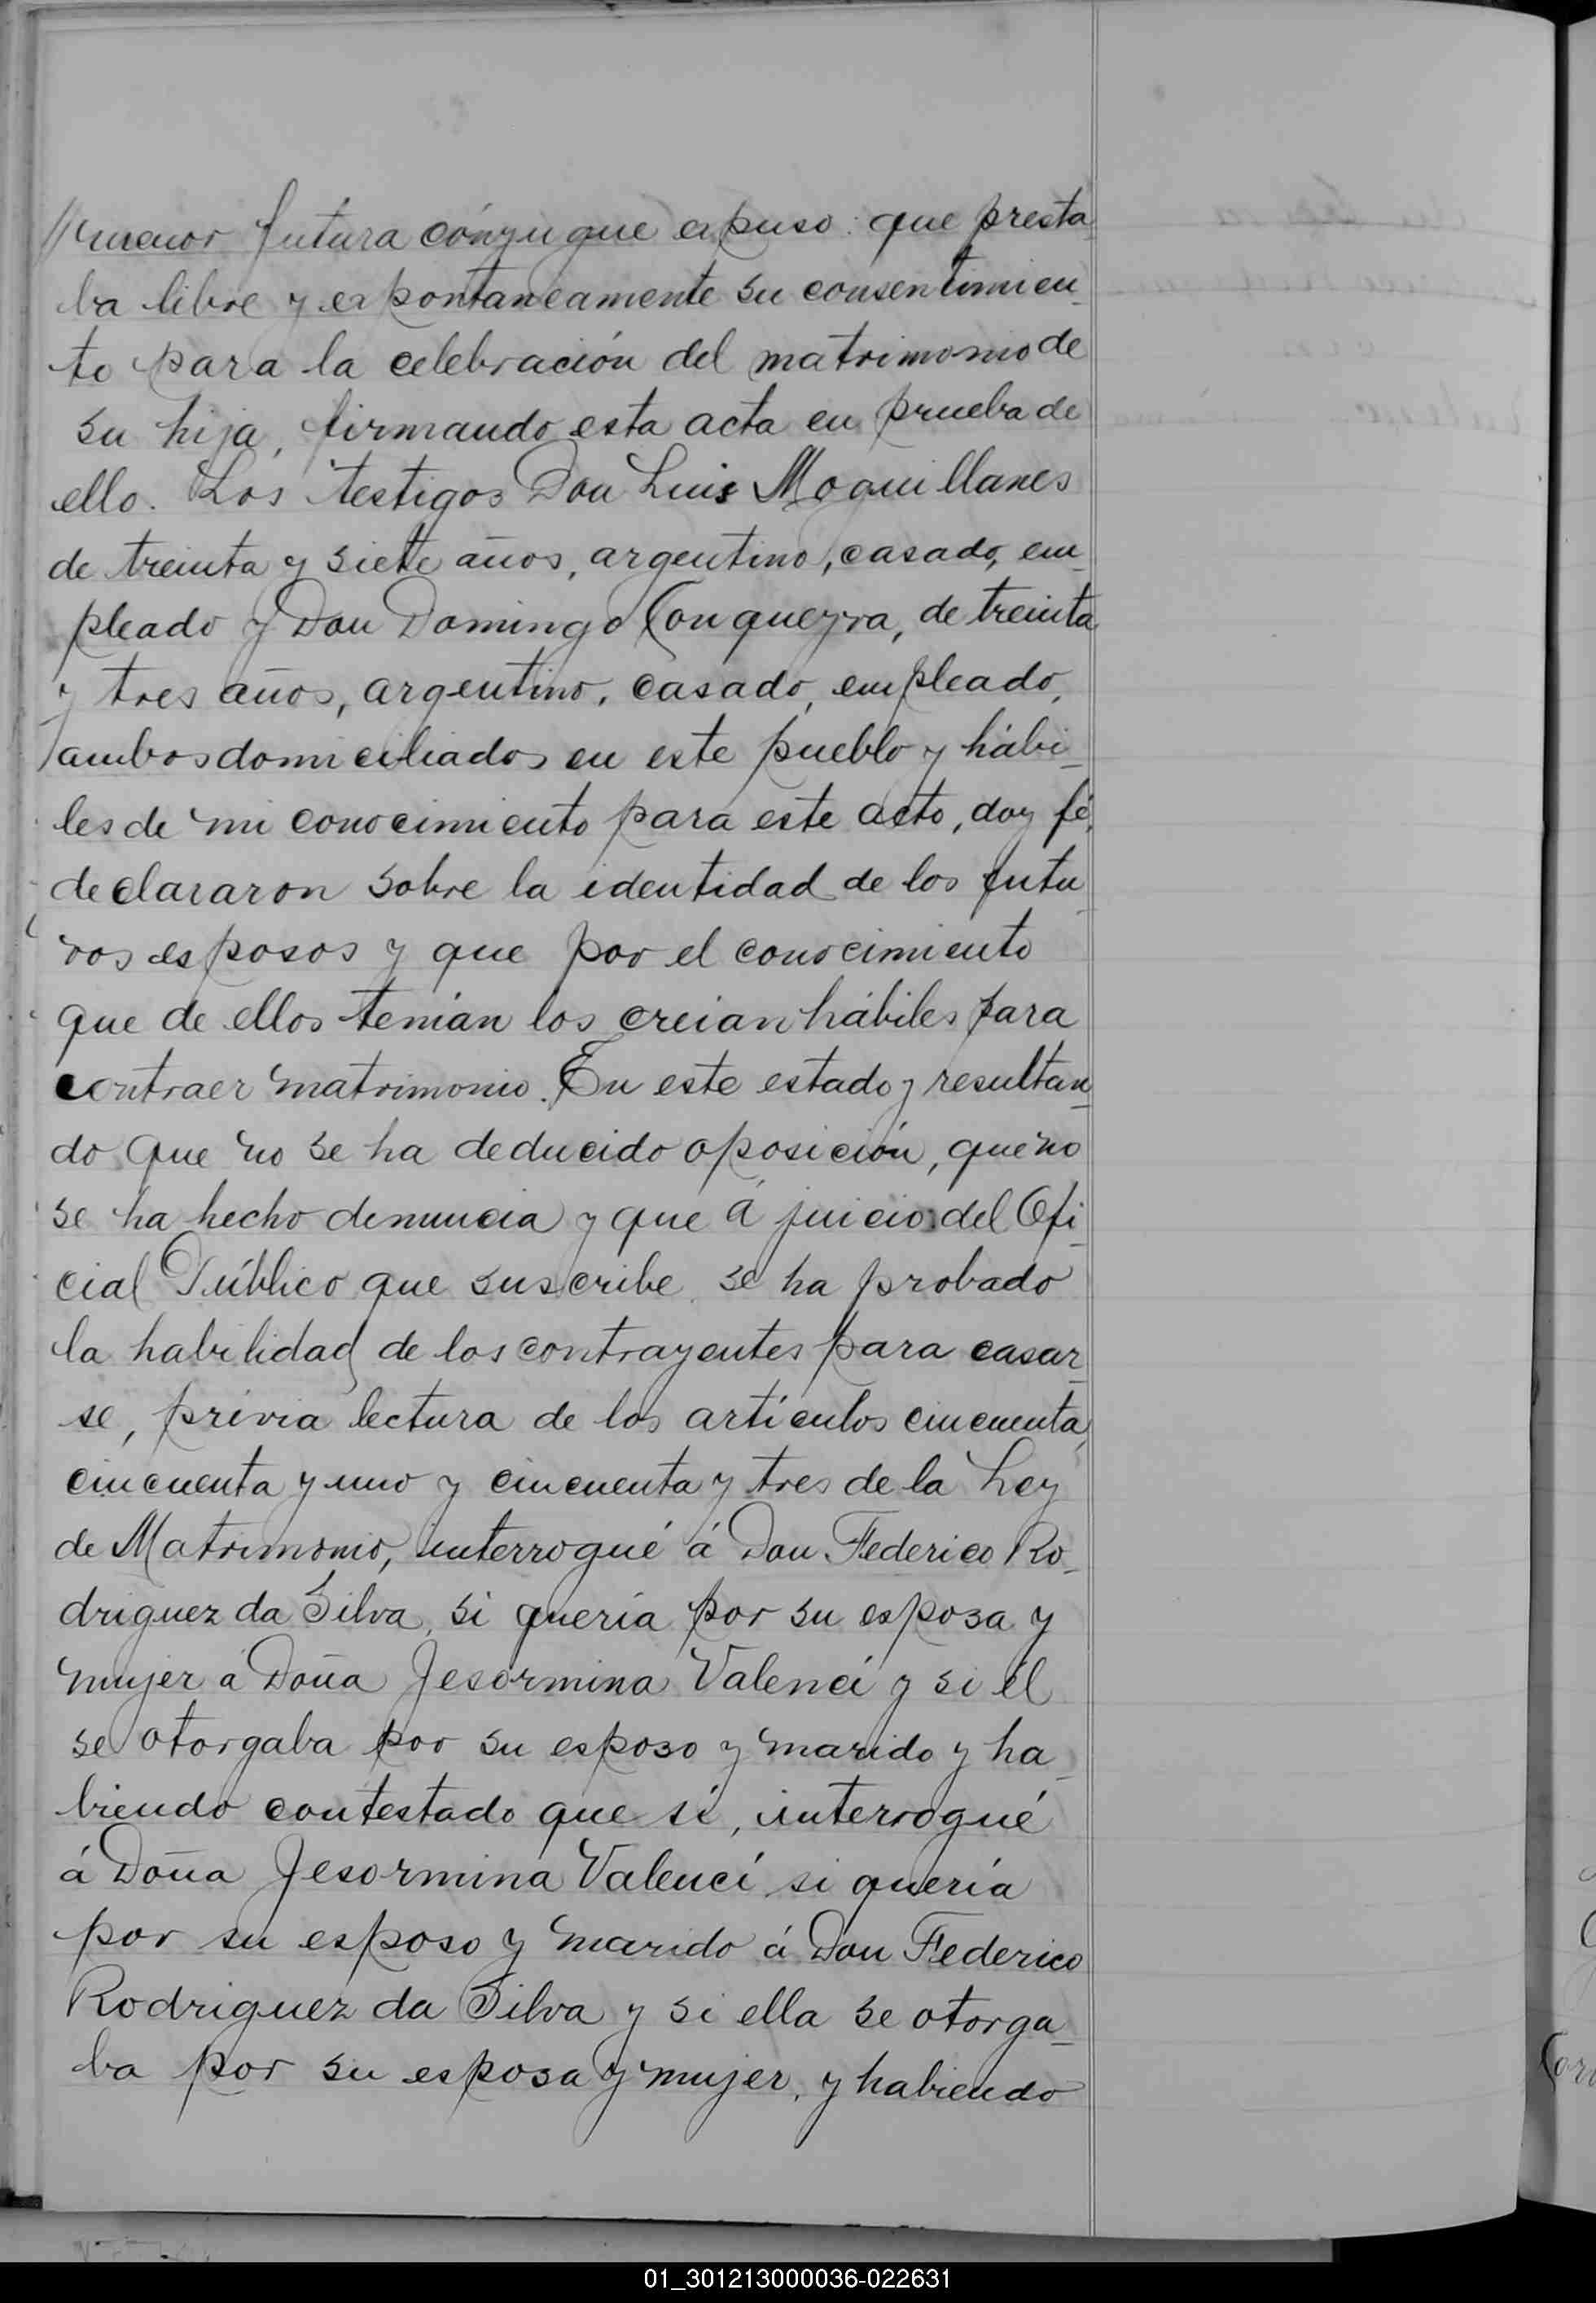 // menor futura cónyugue expuso: que presta
ba libre y expontaneamente su consentimien
to para la celebración del matrimonio de
su hija, firmando esta acta en prueba de
ello. Los testigos Don Luis Moquillanes
de treinta y siete años, argentino, casado, em
pleado y Don Domingo Conqueyra, de treinta
y tres años, argentino, casado, empleado,
ambos domiciliados en este pueblo y hábi
les de mi conocimiento para este acto, doy fé,
declararon sobre la identidad de los futu
ros esposos y que por el conocimiento
que de ellos tenían los creian hábiles para
contraer matrimonio. En este estado y resultan
do que no se ha deducido oposición, que no
se ha hecho denuncia y que á juicio del Ofi
cial Público que suscribe se ha probado
la habilidad de los contrayentes para casar
se, prévia lectura de los artículos cincuenta,
cincuenta y uno y cincuenta y tres de la Ley
de Matrimonio, interrogué á Don Federico Ro
driguez da Silva, si quería por su esposa y
mujer á Doña Jesormina Valencí y si él
se otorgaba por su esposo y marido y ha
biendo contestado que sí, interrogué
á Doña Jesormina Valencí si quería
por su esposo y marido á Don Federico
Rodriguez da Silva y si ella se otorga
ba por su esposa y mujer, y habiendo
01_301213000036-022631